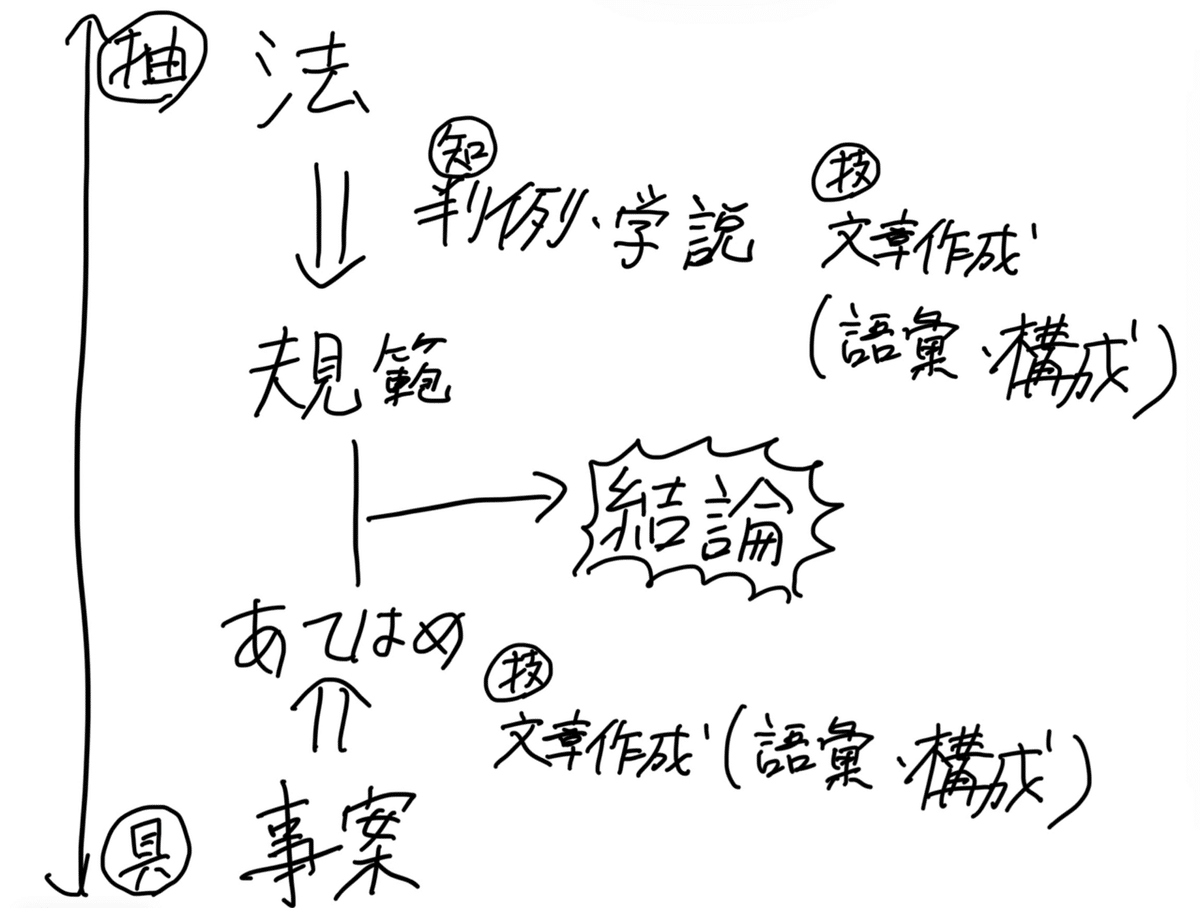 抽 法
知
判例・学説
技
文章作成
(語彙・構成)
規範
結論
あてはめ
技
文章作成(語彙・構成)
具 事案